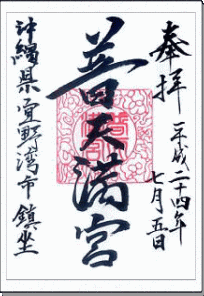 奉拝
平成二十四年
七月五日
普天満宮
沖縄県宜野湾市鎮坐